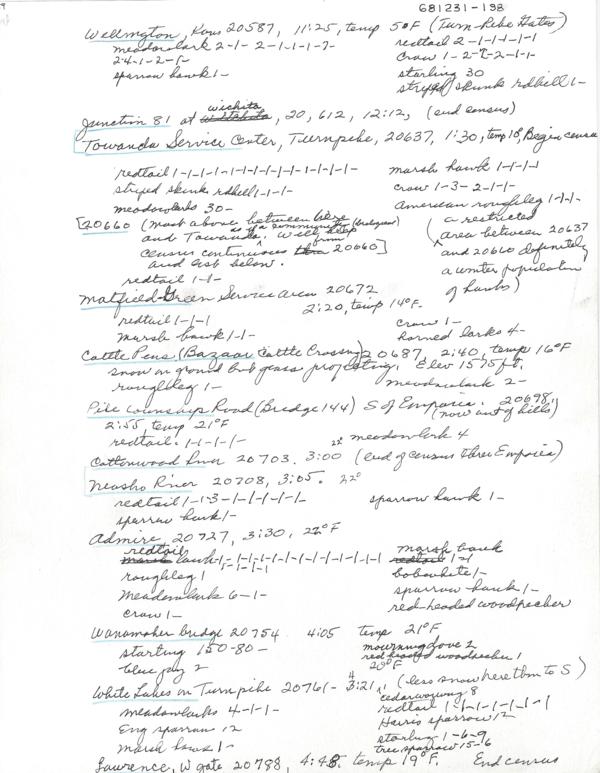 681231-198
Wellington, Kans 20587, 11:25, temp 50F (Turn Pike Gates)
meadowlark 2-1-2-1-1-1-7- redtail 2-1-1-1-1-1
2-4-1-2-1- crow 1-2-2-2-1-1
sparrow hawk 1- starling 30
striped skunk rdkill 1-
Junction 81 at Wichita, 20,612, 12:12, (end census)
Towanda Service Center, Turnpike, 20637, 1:30, temp 18, Begin census
redtail 1-1-1-1-1-1-1-1-1-1-1-1-1- marsh hawk 1-1-1-1
striped skunk rdkill 1-1-1- crow 1-3-2-1-1-
meadowlarks 30- American roughleg 1-1-1-
[20660 (most above between here (a restricted
and Towanda, as if a community. Will keep area between 20637
census continuous from 20660] and 20660 definitely
and list below. a winter population
redtail 1-1- of hawks)
Matfield Green Service area 20672
2:20, temp 14°F.
redtail 1-1-1 crow 1-
Marsh hawk 1-1- horned larks 4-
Cattle Pens (Bazaar Cattle Crossing) 20687, 2:40, temp 16°F
snow on ground but grass projecting. Elev 1575 ft.
roughleg 1- meadowlark 2-
Pike township Road (Bridge 144) S of Emporia. 20698,
2:55, temp 21°F (now out of hills)
redtail 1-1-1-1- meadowlark 4
Cottonwood River 20703. 3:00 (end of census thru Emporia)
Neosho River 20708, 3:05. 22°
redtail 1-1-3-1-1-1-1-1- sparrow hawk 1-
sparrow hawk 1-
Admire, 20727, 3:30, 22°F
redtail hawk 1-1-1-1-1-1-1-1-1-1-1-1-1 marsh hawk 1-1
roughleg 1 bobwhite 1-
Meadowlark 6-1- sparrow hawk 1-
crow 1- red-headed woodpecker
Wanamaker bridge 20754 4:05 temp 21°F
starling 150-80- mourning dove 2
blue jay 2 red headed woodpecker 1
20°F
White Lakes on Turnpike 20761- 4:21, (less snow here than to S)
cedar waxwing 8
meadowlarks 4-1-1- redtail 1-1-1-1-1-1-1
Eng sparrow 12 Harris sparrow 12
Marsh hawk 1- starling 1-6-9
tree sparrow 15-6
Lawrence, W gate 20788, 4:48. temp 19°F. End census